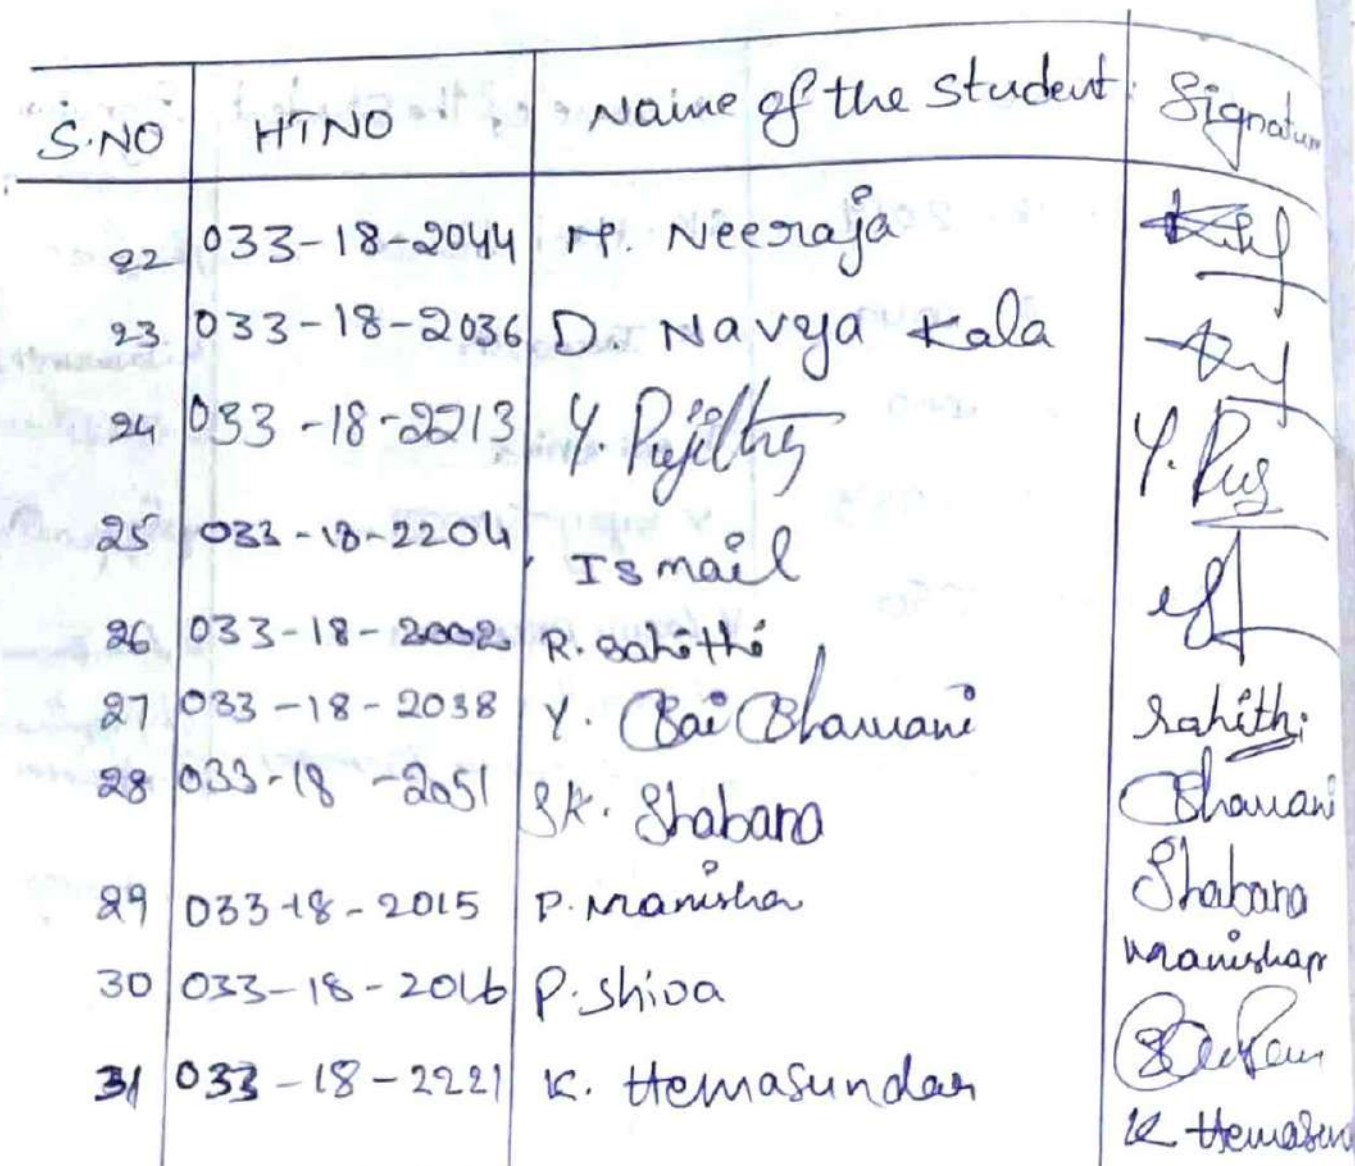 S.NO HTNO Name of the Student Signature
22 033-18-2044 M. Neeraja
23 033-18-2036 D. Navya Kala
24 033-18-2213 Y. Pujitha Y. Puj
25 033-18-2204 Ismail
26 033-18-2002 R. Sahithi
27 033-18-2038 Y. Sai Bhavani Sahithi
28 033-18-2051 SK. Shabana Bhavani
29 033-18-2015 P. Manisha Shabana
30 033-18-2016 P. Shiva Manishap
31 033-18-2221 K. Hemasundar
K Hemasun